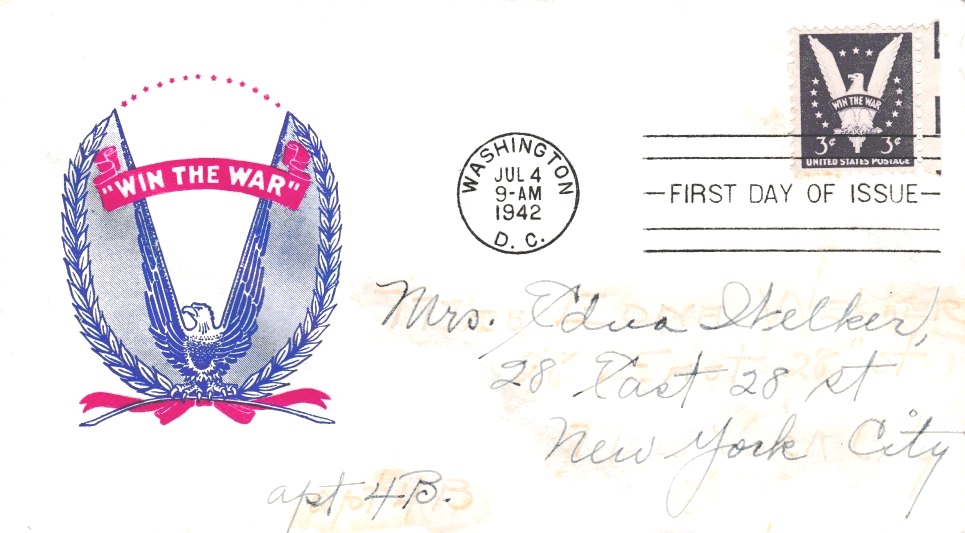 "WIN THE WAR"
WIN THE WAR
3¢ 3¢
UNITED STATES POSTAGE
WASHINGTON
JUL 4
9-AM
1942
D. C.
FIRST DAY OF ISSUE
Mrs. Edna Welker,
28 East 28 st
New York City
apt 4B.